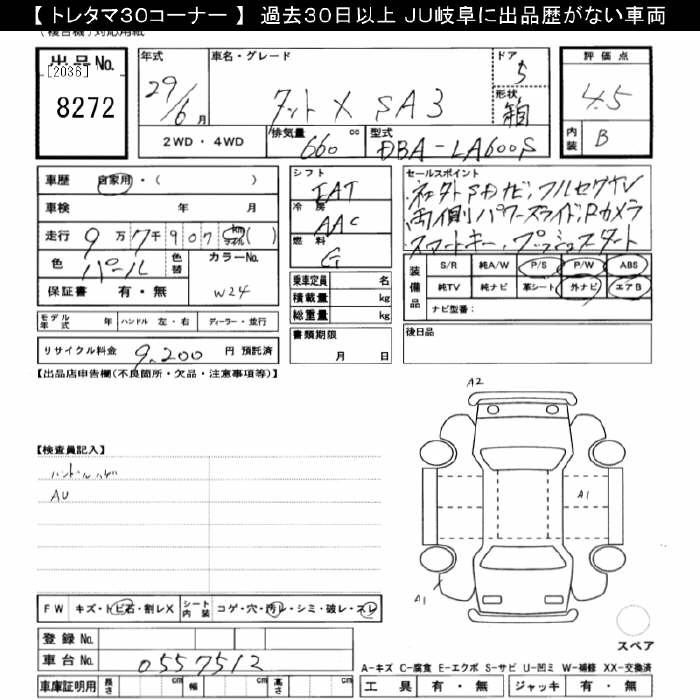 【 トレタマ30コーナー 】 過去30日以上 JU岐阜に出品歴がない車両
(複合機)対応用紙
出品No.
[2036]
8272
年式
29/6 月
車名・グレード
タント X SA3
ドア
5
形状
箱
評価点
4.5
内装 B
2WD・4WD
排気量 660 cc
型式 DBA-LA600S
車歴 自家用・( )
車検 年 月
走行 9万7千907 km マイル ( )
色 パール
色替
カラーNo. W24
保証書 有・無
シフト
IAT
冷房
AAC
燃料
G
乗車定員 名
積載量 kg
総重量 kg
書類期限
月 日
セールスポイント
社外SDナビ、フルセグTV
両側パワースライド、Rカメラ
スマートキー、プッシュスタート
装備品
S/R 純A/W P/S P/W ABS
純TV 純ナビ 革シート 外ナビ エアB
ナビ型番:
モデル年式 年 ハンドル 左・右 ディーラー・並行
リサイクル料金 9,200 円 預託済
後日品
【出品店申告欄(不良箇所・欠品・注意事項等)】
【検査員記入】
AU
A2
A1
A1
FW キズ・トビ石・割レX
シート内装 コゲ・穴・汚レ・シミ・破レ・スレ
登録No.
車台No. 0557512
車庫証明用 長さ cm 幅 cm 高さ cm
スペア
A-キズ C-腐食 E-エクボ S-サビ U-凹ミ W-補修 XX-交換済
工具 有・無 ジャッキ 有・無